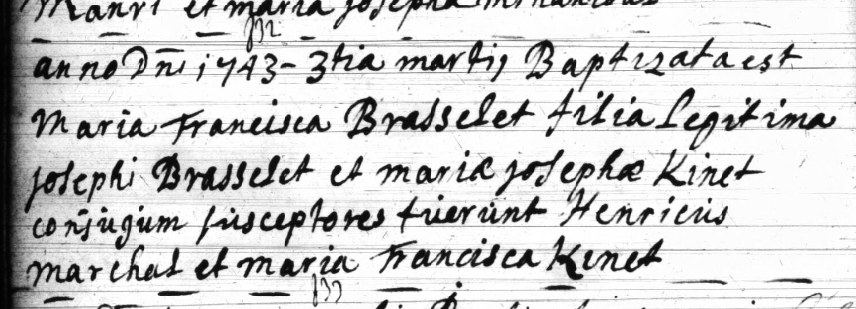 et maria josepha
132
anno Dni 1743 - 3tia martij Baptizata est
Maria Francisca Brasselet filia Legitima
josephi Brasselet et mariæ josephæ Kinet
conjugum susceptores fuerunt Henricus
marchal et maria Francisca Kinet
133